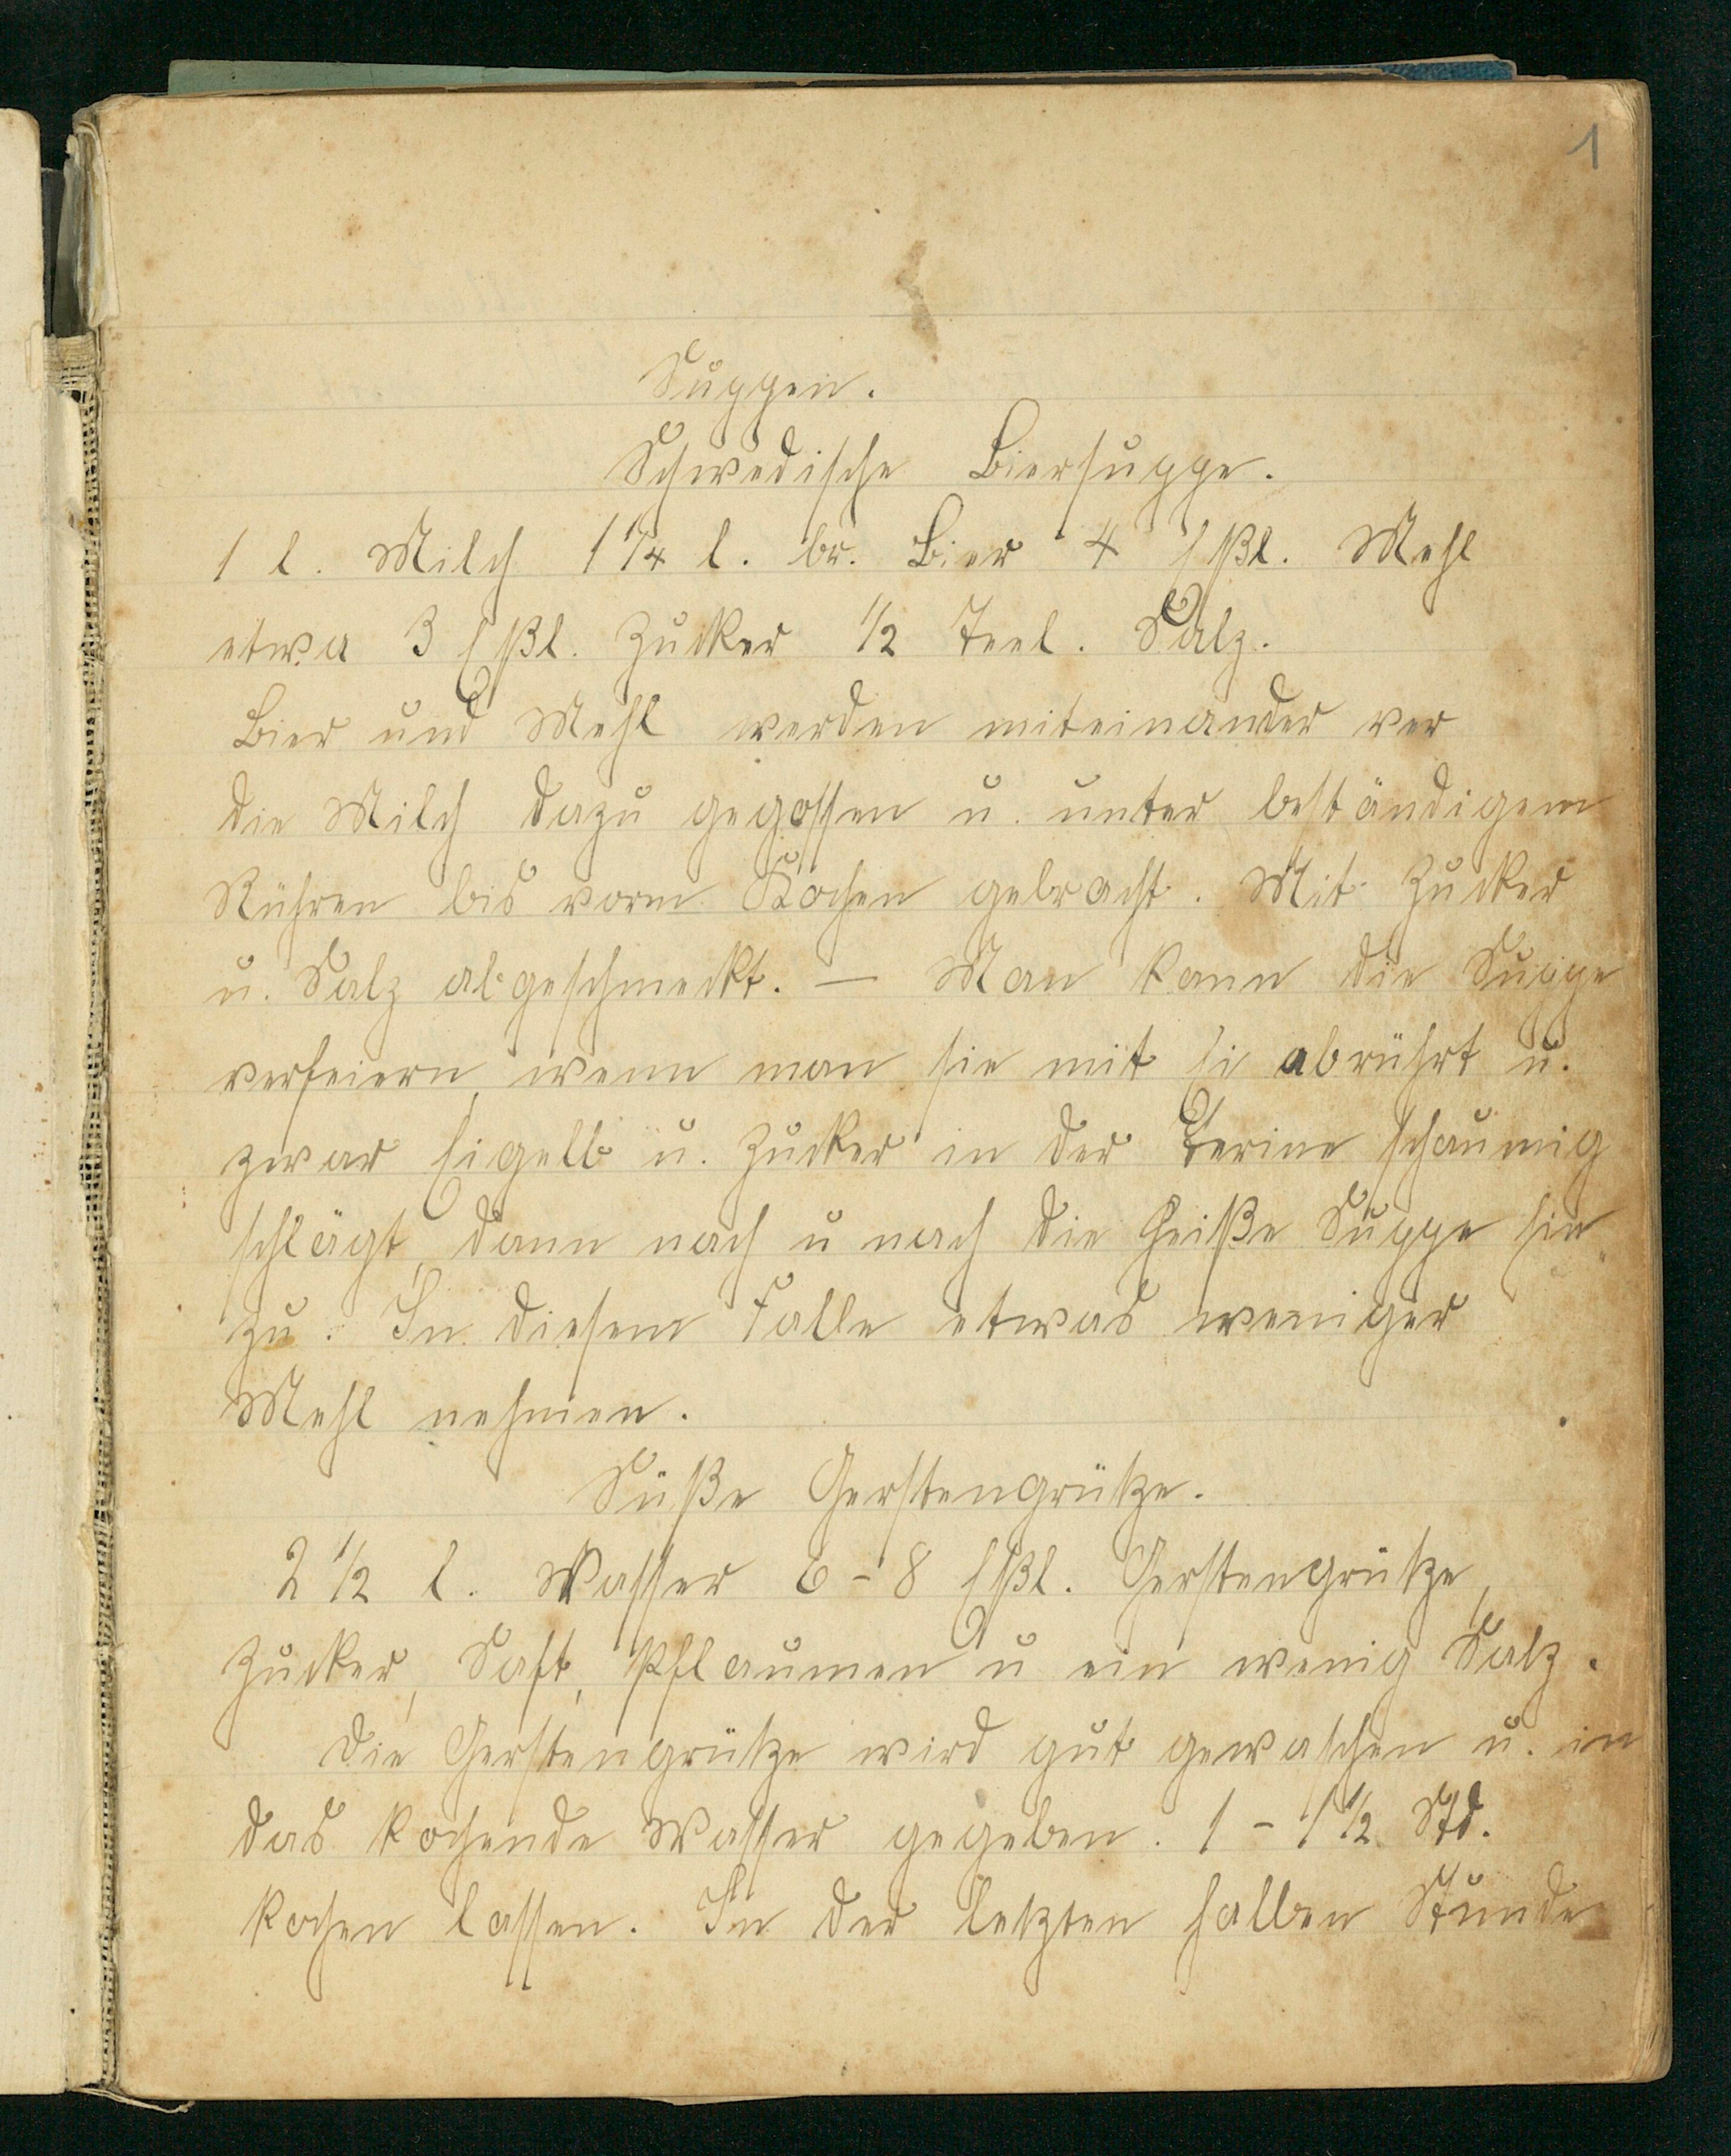 1
Suppen.
Schwedische Biersuppe.
1 l. Milch 1 1/4 l. br. Bier 4 Eßl. Mehl
etwa 3 Eßl. Zucker 1/2 Teel. Salz.
Bier und Mehl werden miteinander ver
die Milch dazu gegossen u. unter beständigem
Rühren bis vorm Kochen gebracht. Mit Zucker
u. Salz abgeschmeckt. — Man kann die Suppe
verfeiern, wenn man sie mit Ei abrührt u.
zwar Eigelb u. Zucker in der Terine schaumig
schlägt, dann nach u nach die heiße Suppe hin
zu. In diesem Falle etwas weniger
Mehl nehmen.
Süße Gerstengrütze.
2 1/2 l. Wasser 6-8 Eßl. Gerstengrütze,
Zucker, Saft, Pflaumen u ein wenig Salz.
Die Gerstengrütze wird gut gewaschen u. in
das kochende Wasser gegeben. 1 - 1 1/2 Std.
kochen lassen. In der letzten halben Stunde